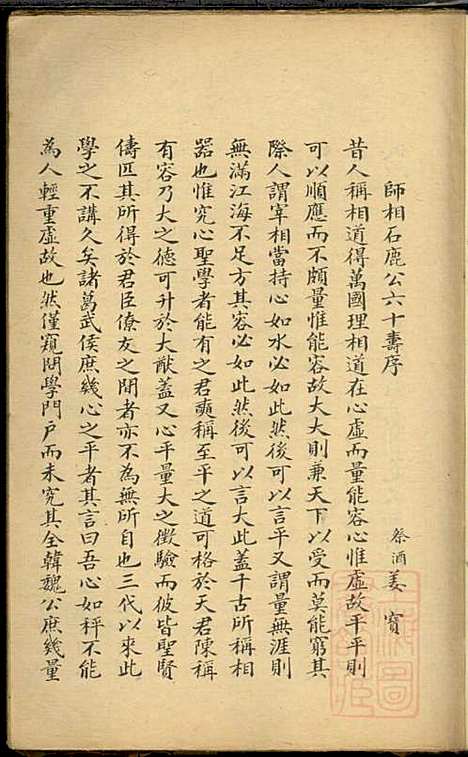 師相石鹿公六十壽序
祭酒姜寶
昔人稱相道得萬國理相道在心虛而量能容心惟虛故平平則
可以順應而不頗量惟能容故大大則兼天下以受而莫能窮其
際人謂宰相當持心如水必如此然後可以言平又謂量無涯則
無滿江海不足方其容必如此然後可以言大此蓋千古所稱相
器也惟究心聖學者能有之君奭稱至平之道可格於天君陳稱
有容乃大之德可升於大猷蓋又心平量大之徵驗而彼皆聖賢
儔匹其所得於君臣僚友之間者亦不為無所自也三代以來此
學之不講久矣諸葛武侯庶幾心之平者其言曰吾心如秤不能
為人輕重虛故也然僅窺閫學門戶而未究其全韓魏公庶幾量